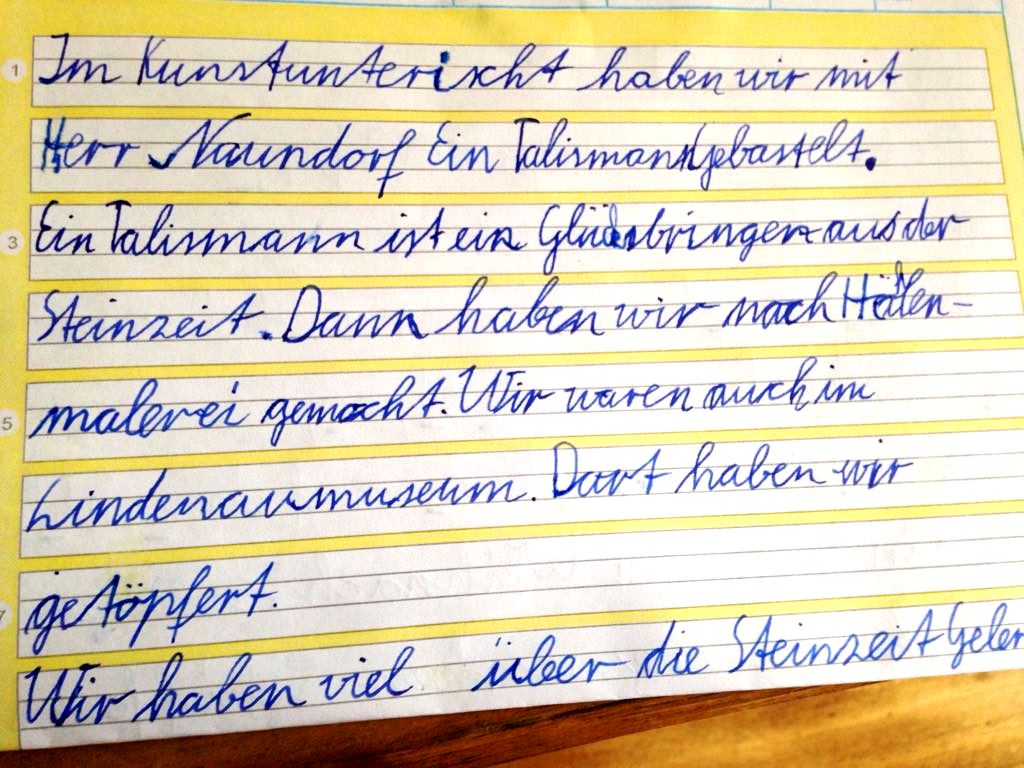 1 Im Kunstunterischt haben wir mit
Herr Naundorf Ein Talismann gebastelt.
3 Ein Talismann ist ein Glücksbringer aus der
Steinzeit. Dann haben wir noch Höhlen-
5 malerei gemacht. Wir waren auch im
Lindenaumuseum. Dort haben wir
7 getöpfert.
Wir haben viel über die Steinzeit Geler